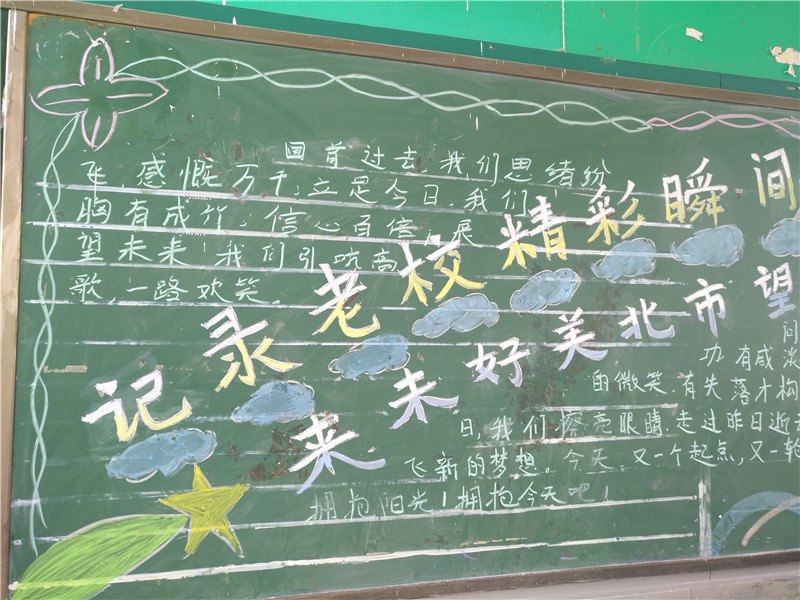 回首过去,我们思绪纷
飞,感慨万千;立足今日,我们
胸有成竹,信心百倍,展
望未来 我们引吭高
歌,一路欢笑。
记录老校精彩瞬间
来未好美北市望
问
功有咸淡
的微笑.有失落才构
日,我们擦亮眼睛.走过昨日逝去
飞新的梦想。今天.又一个起点,又一轮
拥抱阳光!拥抱今天吧!